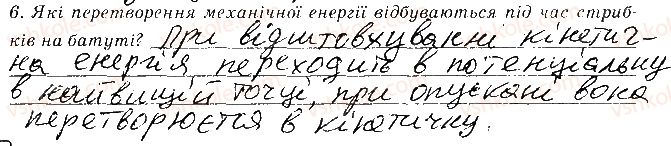 6. Які перетворення механічної енергії відбуваються під час стриб-
ків на батуті? При відштовхуванні кінетич-
на енергія переходить в потенціальну
в найвищій точці, при опускані вона
перетворюєтся в кінетичну.